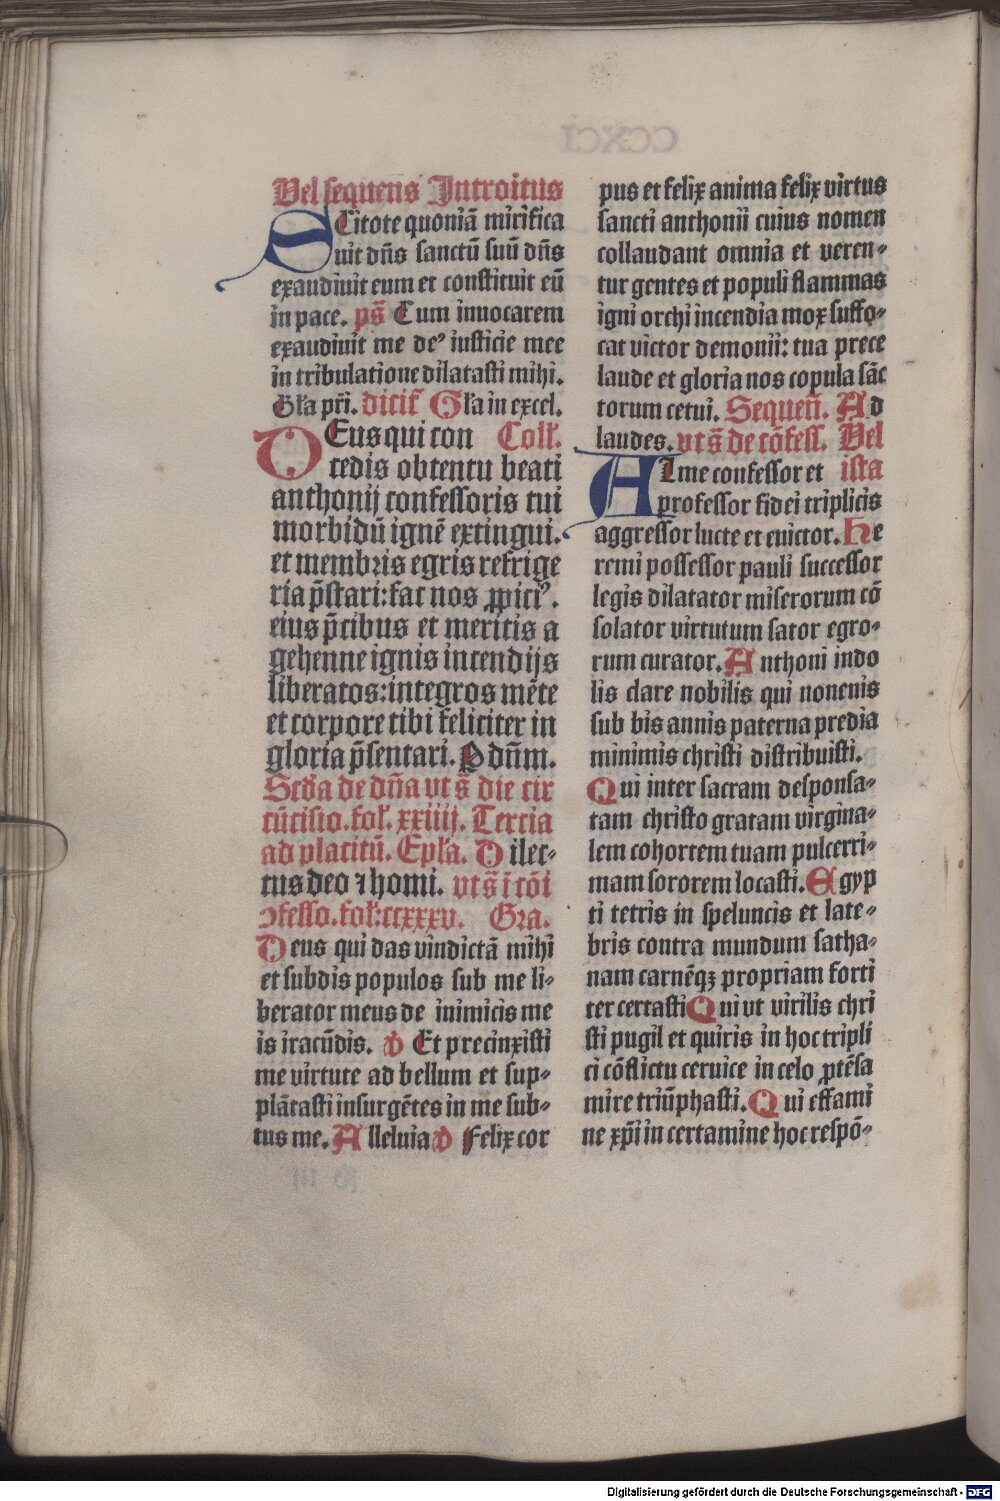 Vel sequens Introitus
SCitote quoniā mirifica
uit dn̄s sanctū suū dn̄s
exaudiuit eum et constituit eū
in pace. ps̄ Cum inuocarem
exaudiuit me deꝰ iusticie mee
in tribulatione dilatasti mihi.
Gl'a pr̄i. dicit᷑ Gl'a in excel.
DEus qui con Coll'.
cedis obtentu beati
anthonij confessoris tui
morbidū ignē extingui.
et membris egris refrige
ria p̄stari: fac nos ꝓpiciꝰ.
eius p̄cibus et meritis a
gehenne ignis incendijs
liberatos: integros mēte
et corpore tibi feliciter in
gloria p̄sentari. P dn̄m.
Scd'a de dn̄a vt s̄ die cir
cūcisio. fol'. xxiiij. Tercia
ad placitū. Epl'a. Dilec-
tus deo ⁊ homi. vt s̄ ī cōi
ꝯfesso. fol': ccxxxv. Gra.
Deus qui das vindictā mihi
et subdis populos sub me li-
berator meus de inimicis me
is iracūdis. V Et precinxisti
me virtute ad bellum et sup-
plātasti insurgētes in me sub-
tus me. Alleluia V Felix cor
pus et felix anima felix virtus
sancti anthonii cuius nomen
collaudant omnia et veren-
tur gentes et populi flammas
igni orchi incendia mox suffo-
cat victor demonii: tua prece
laude et gloria nos copula sāc
torum cetui. Sequen̄. Ad
laudes. vt s̄ de cōfess. Vel
ALme confessor et ista
professor fidei triplicis
aggressor lucte et euictor. He
remi possessor pauli successor
legis dilatator miserorum cō
solator virtutum sator egro-
rum curator. Anthoni indo
lis clare nobilis qui nonenis
sub bis annis paterna predia
minimis christi distribuisti.
Qui inter sacram desponsa-
tam christo gratam virgina-
lem cohortem tuam pulcerri-
mam sororem locasti. Egyp
ti tetris in speluncis et late-
bris contra mundum satha-
nam carnēqꝫ propriam forti
ter certasti Qui vt virilis chri
sti pugil et quiris in hoc tripli
ci cōflictu ceruice in celo ꝓtēsa
mire triūphasti. Qui effami
ne xp̄i in certamine hoc respō-
Digitalisierung gefördert durch die Deutsche Forschungsgemeinschaft - DFG